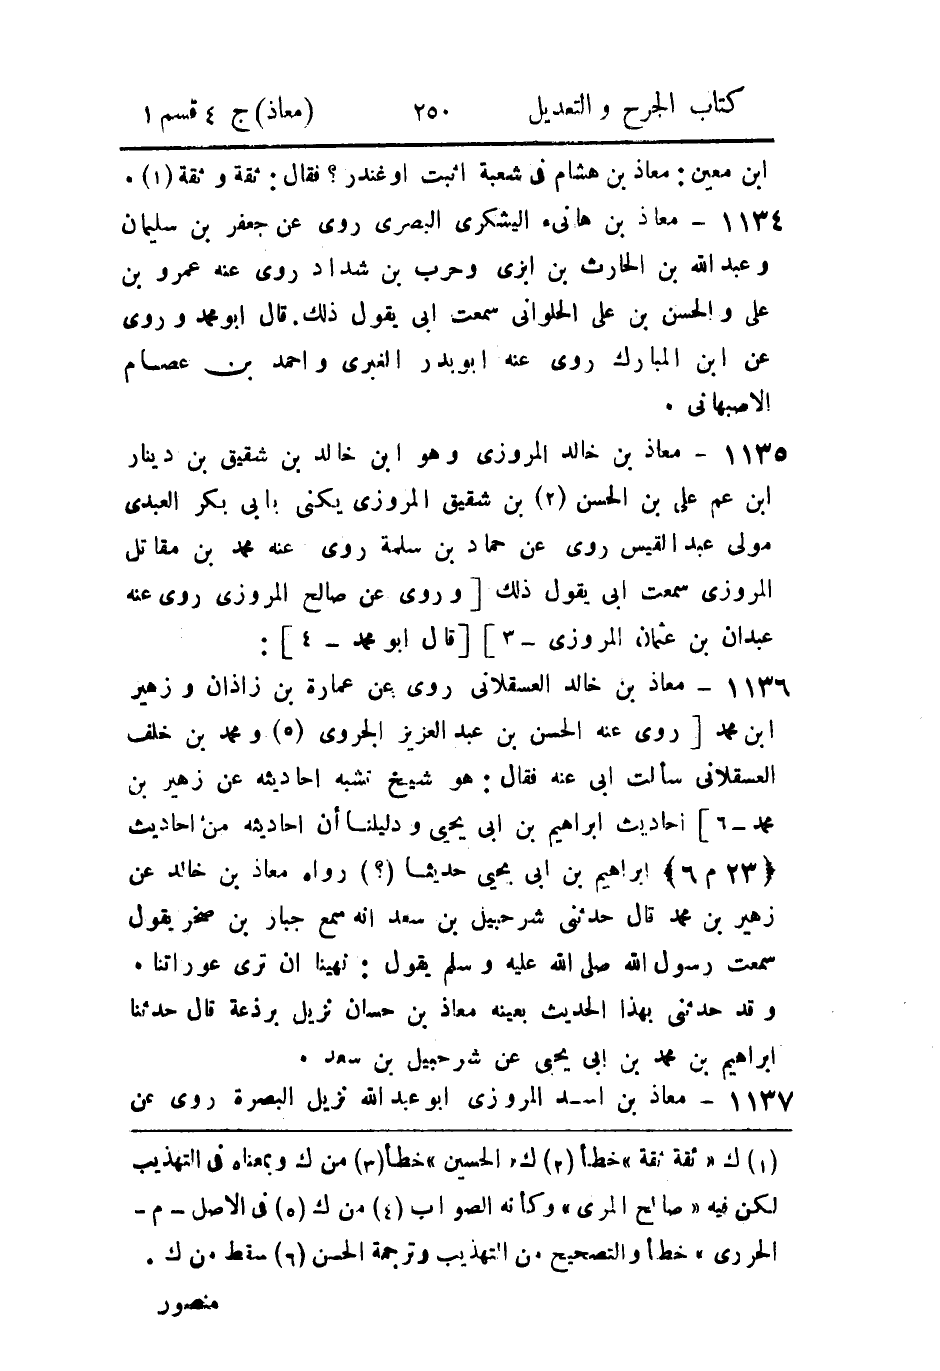 كتاب الجرح و التعديل ٢٥٠ (معاذ) ج ٤ قسم ١
ابن معين : معاذ بن هشام فى شعبة اثبت او غندر ؟ فقال : ثقة و ثقة (١) .
١١٣٤ - معاذ بن هانىء اليشكرى البصرى روى عن جعفر بن سليمان
و عبد الله بن الحارث بن ابزى وحرب بن شداد روى عنه عمرو بن
على و الحسن بن على الحلوانى سمعت ابى يقول ذلك . قال ابو محمد و روى
عن ابن المبارك روى عنه ابو بدر الغبرى و احمد بن عصام
الاصبهانى .
١١٣٥ - معاذ بن خالد المروزى و هو ابن خالد بن شقيق بن دينار
ابن عم على بن الحسن (٢) بن شقيق المروزى يكنى بابى بكر العبدى
مولى عبد القيس روى عن حماد بن سلمة روى عنه محمد بن مقاتل
المروزى سمعت ابى يقول ذلك [ و روى عن صالح المروزى روى عنه
عبدان بن عثمان المروزى - ٣ ] [ قال ابو محمد - ٤ ] :
١١٣٦ - معاذ بن خالد العسقلانى روى عن عمارة بن زاذان و زهير
ابن محمد [ روى عنه الحسن بن عبد العزيز الجروى (٥) و محمد بن خلف
العسقلانى سألت ابى عنه فقال : هو شيخ تشبه احاديثه عن زهير بن
محمد - ٦ ] احاديث ابراهيم بن ابى يحيى و دليلنا أن احاديثه من احاديث
﴿٢٣ م ٦﴾ ابراهيم بن ابى يحيى حديثا (؟) رواه معاذ بن خالد عن
زهير بن محمد قال حدثنى شرحبيل بن سعد انه سمع جبار بن صخر يقول
سمعت رسول الله صلى الله عليه و سلم يقول : نهينا ان ترى عوراتنا .
و قد حدثنى بهذا الحديث بعينه معاذ بن حسان نزيل برذعة قال حدثنا
ابراهيم بن محمد بن ابى يحيى عن شرحبيل بن سعد .
١١٣٧ - معاذ بن اسد المروزى ابو عبد الله نزيل البصرة روى عن
(١) ك « ثقة ثقة » خطأ (٢) ك « الحسين » خطأ (٣) من ك وبمعناه فى التهذيب
لكن فيه « صالح المرى » وكأنه الصواب (٤) من ك (٥) فى الاصل - م -
الحررى » خطأ والتصحيح من التهذيب وترجمة الحسن (٦) سقط من ك .
منصور